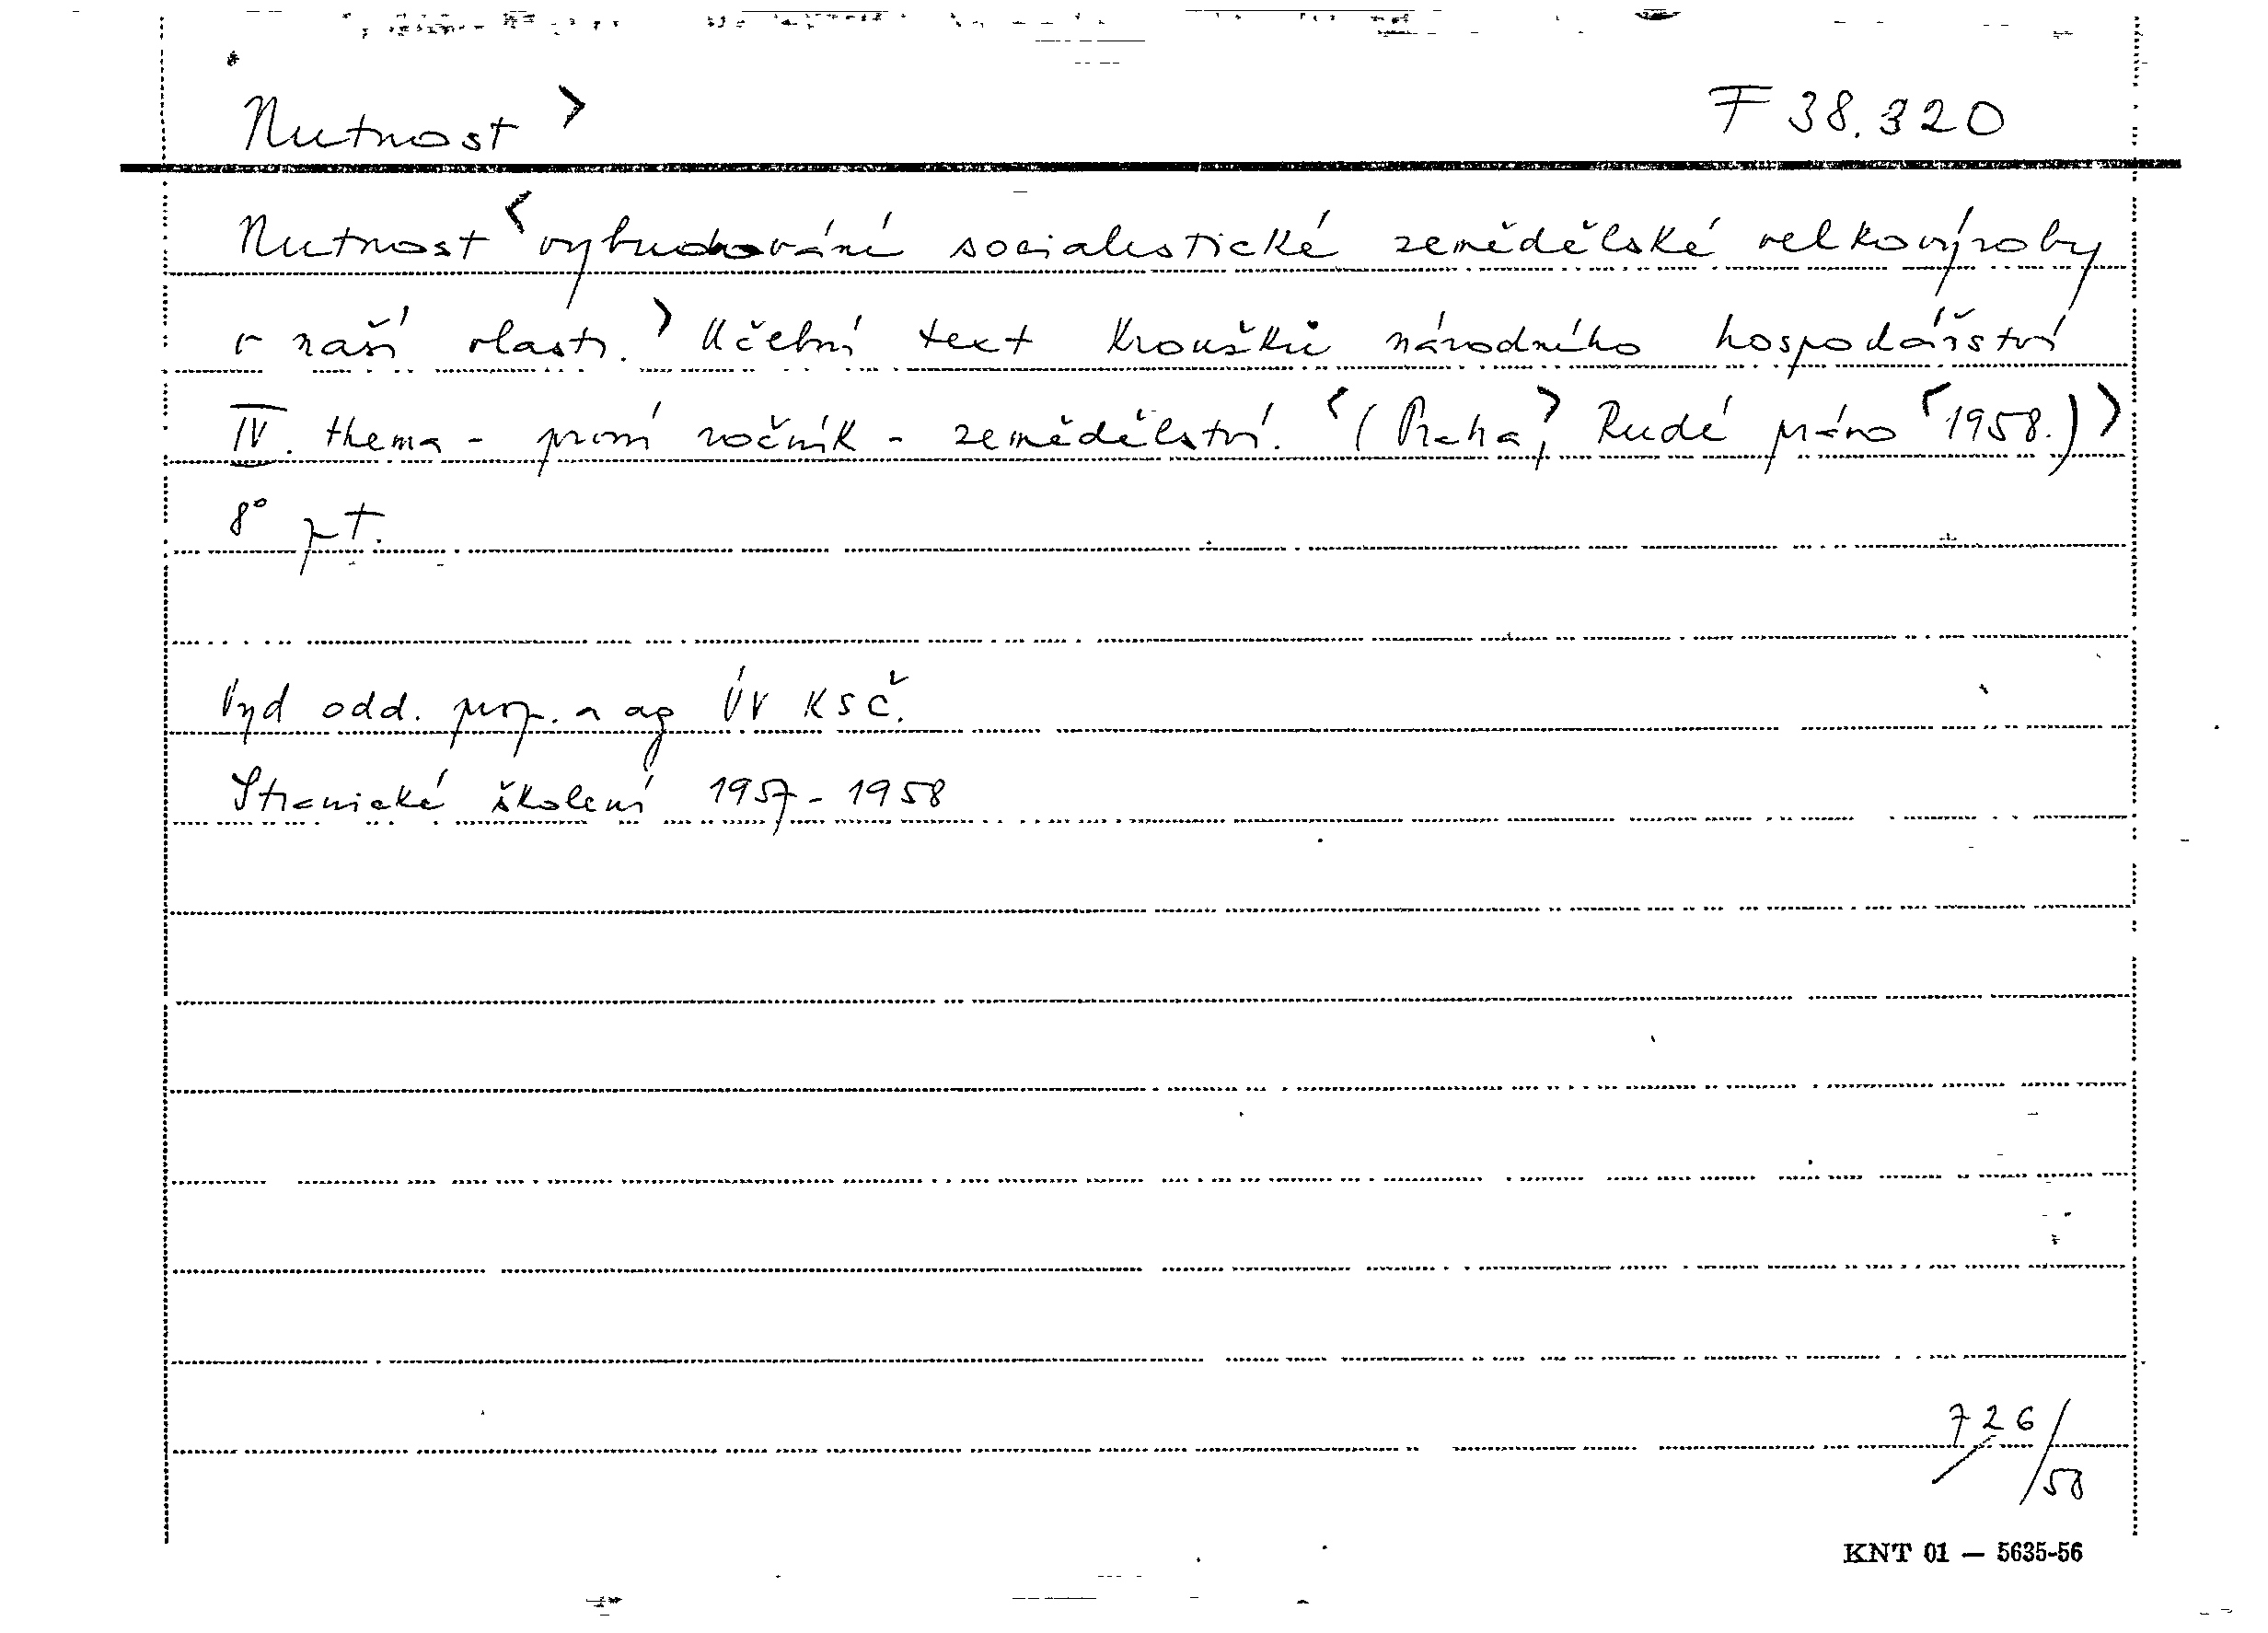 Nutnost > F 38.320
Nutnost < vybudování socialistické zemědělské velkovýroby
v naší vlasti. > Učební text kroužků národního hospodářství
IV. thema - první ročník - zemědělství. < (Praha, > Rudé právo < 1958.) >
8° pt.
Vyd odd. prop. a ag ÚV KSČ.
Stranické školení 1957-1958
726/58
KNT 01 — 5635-56